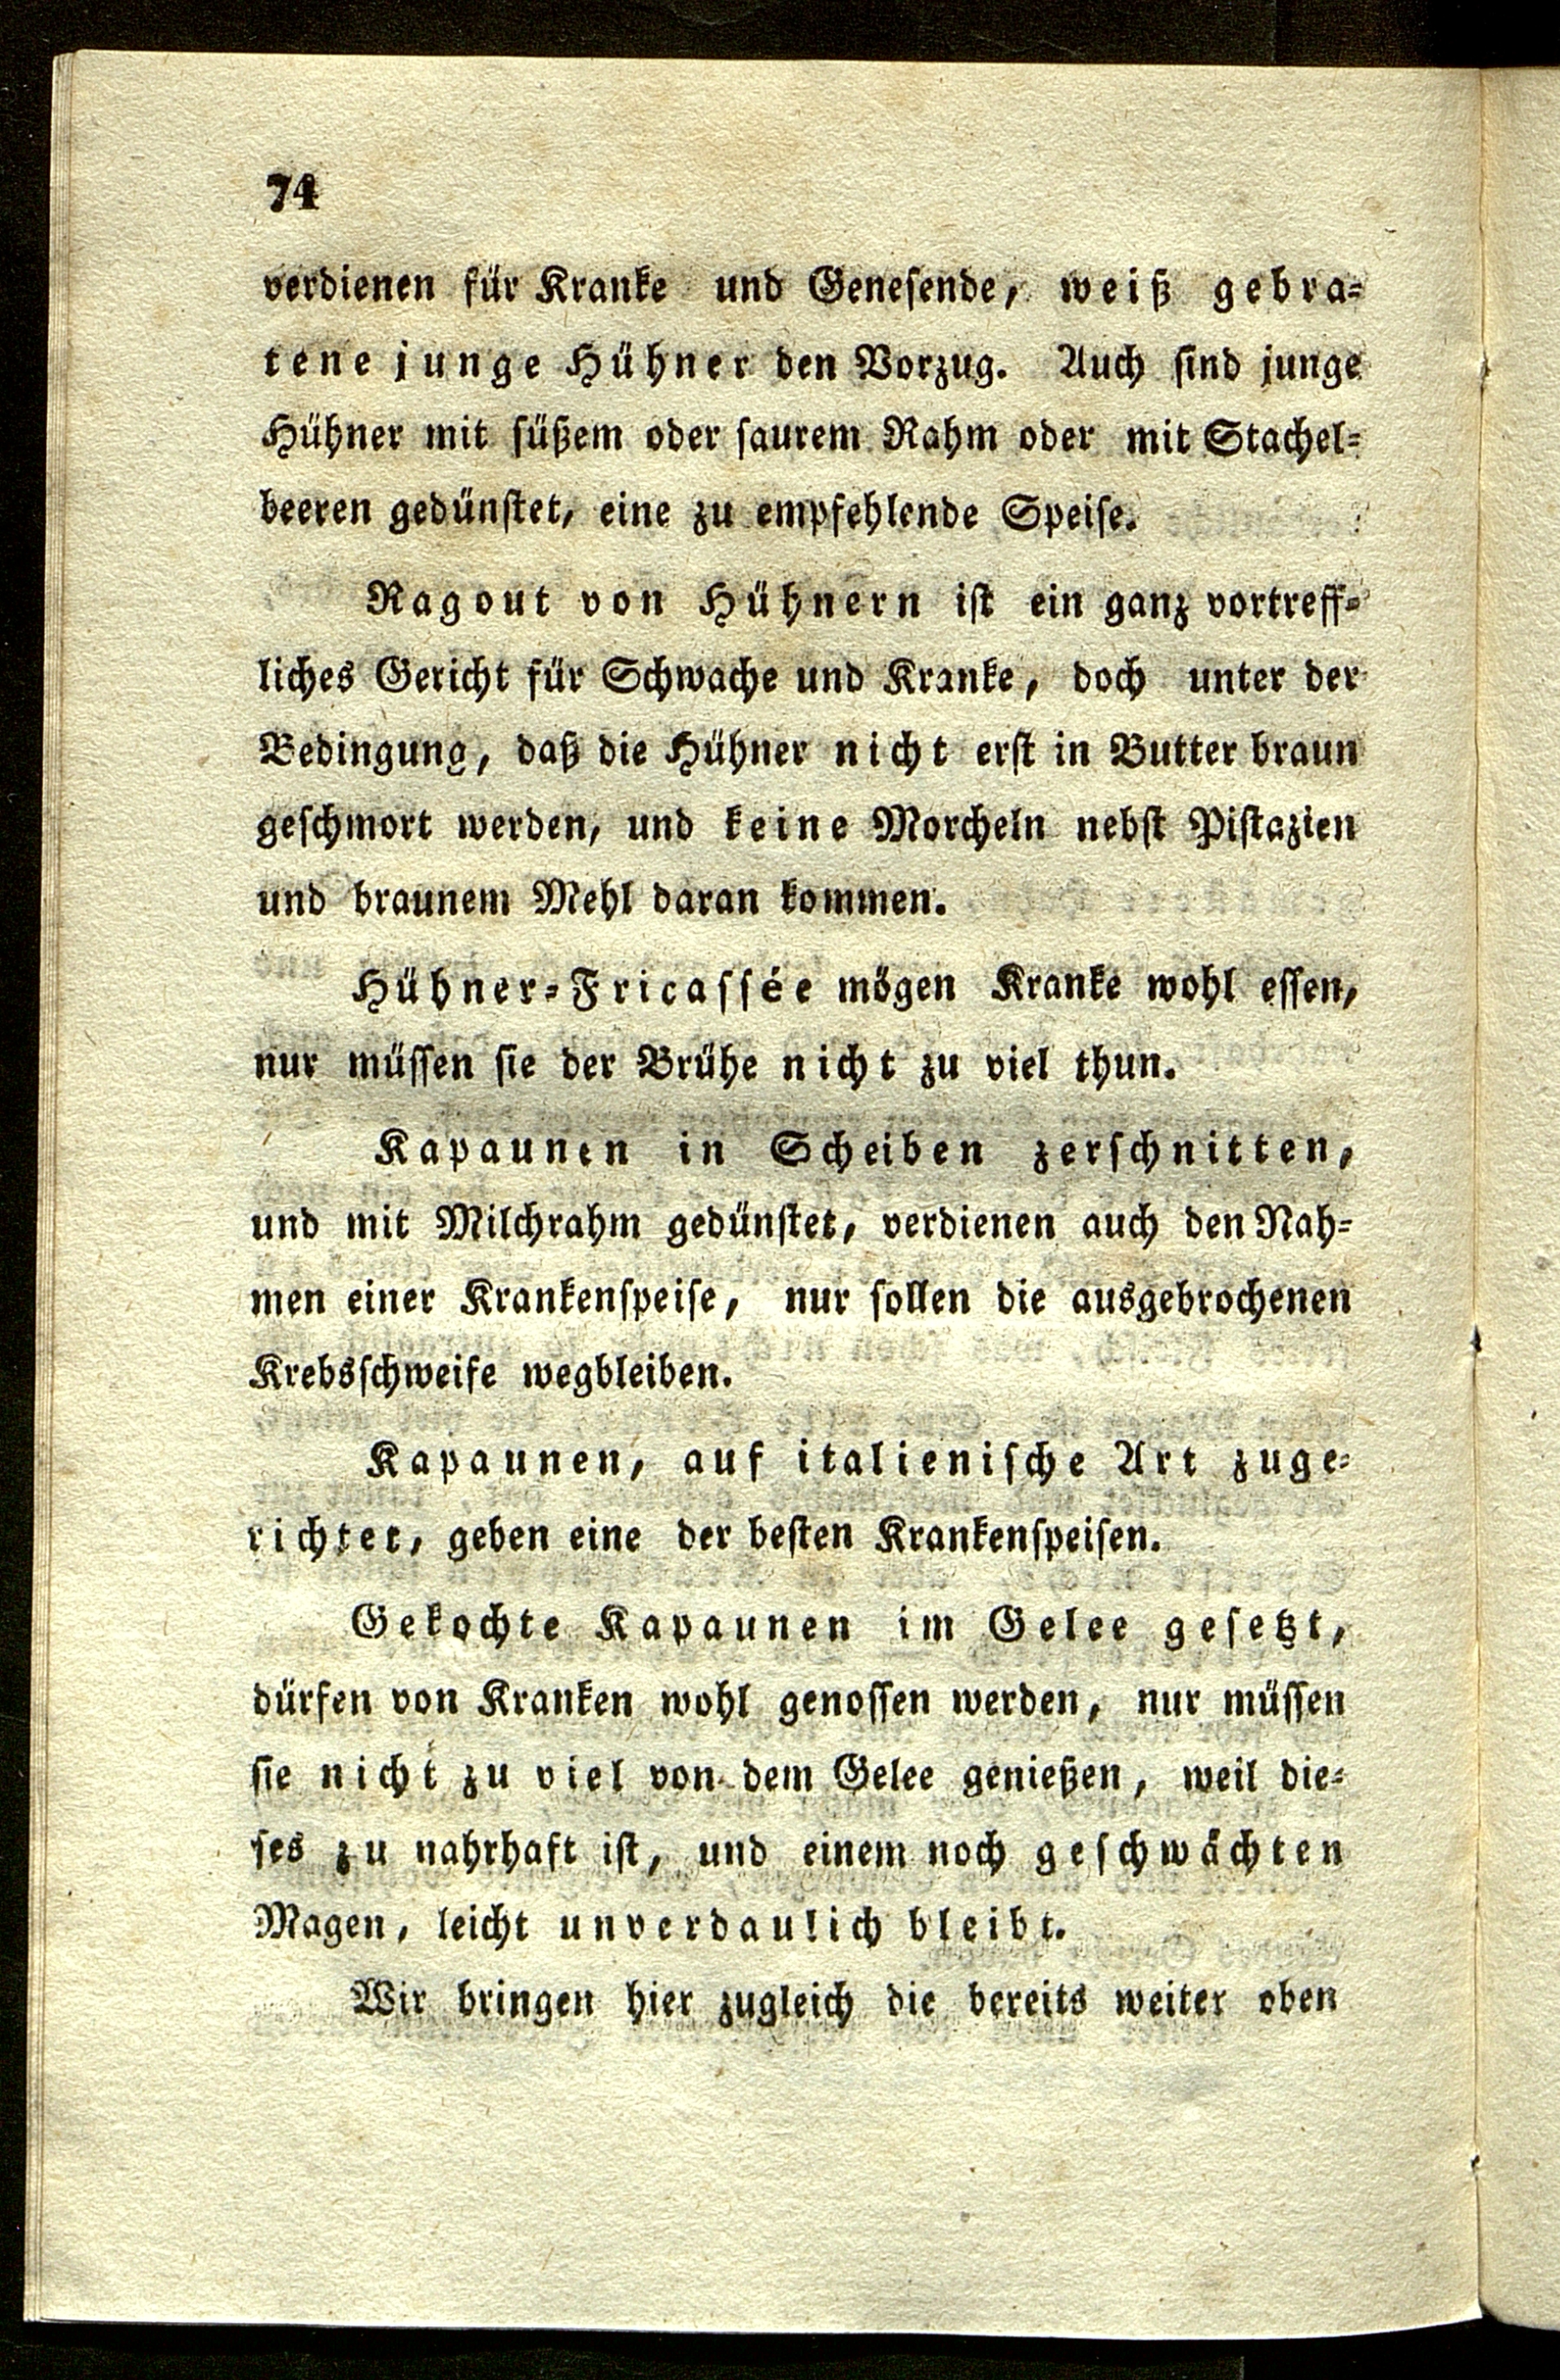 74
verdienen für Kranke und Genesende, weiß gebra-
tene junge Hühner den Vorzug. Auch sind junge
Hühner mit süßem oder saurem Rahm oder mit Stachel-
beeren gedünstet, eine zu empfehlende Speise.
Ragout von Hühnern ist ein ganz vortreff-
liches Gericht für Schwache und Kranke, doch unter der
Bedingung, daß die Hühner nicht erst in Butter braun
geschmort werden, und keine Morcheln nebst Pistazien
und braunem Mehl daran kommen.
Hühner-Fricassée mögen Kranke wohl essen,
nur müssen sie der Brühe nicht zu viel thun.
Kapaunen in Scheiben zerschnitten,
und mit Milchrahm gedünstet, verdienen auch den Nah-
men einer Krankenspeise, nur sollen die ausgebrochenen
Krebsschweife wegbleiben.
Kapaunen, auf italienische Art zuge-
richtet, geben eine der besten Krankenspeisen.
Gekochte Kapaunen im Gelee gesetzt,
dürfen von Kranken wohl genossen werden, nur müssen
sie nicht zu viel von dem Gelee genießen, weil die-
ses zu nahrhaft ist, und einem noch geschwächten
Magen, leicht unverdaulich bleibt.
Wir bringen hier zugleich die bereits weiter oben